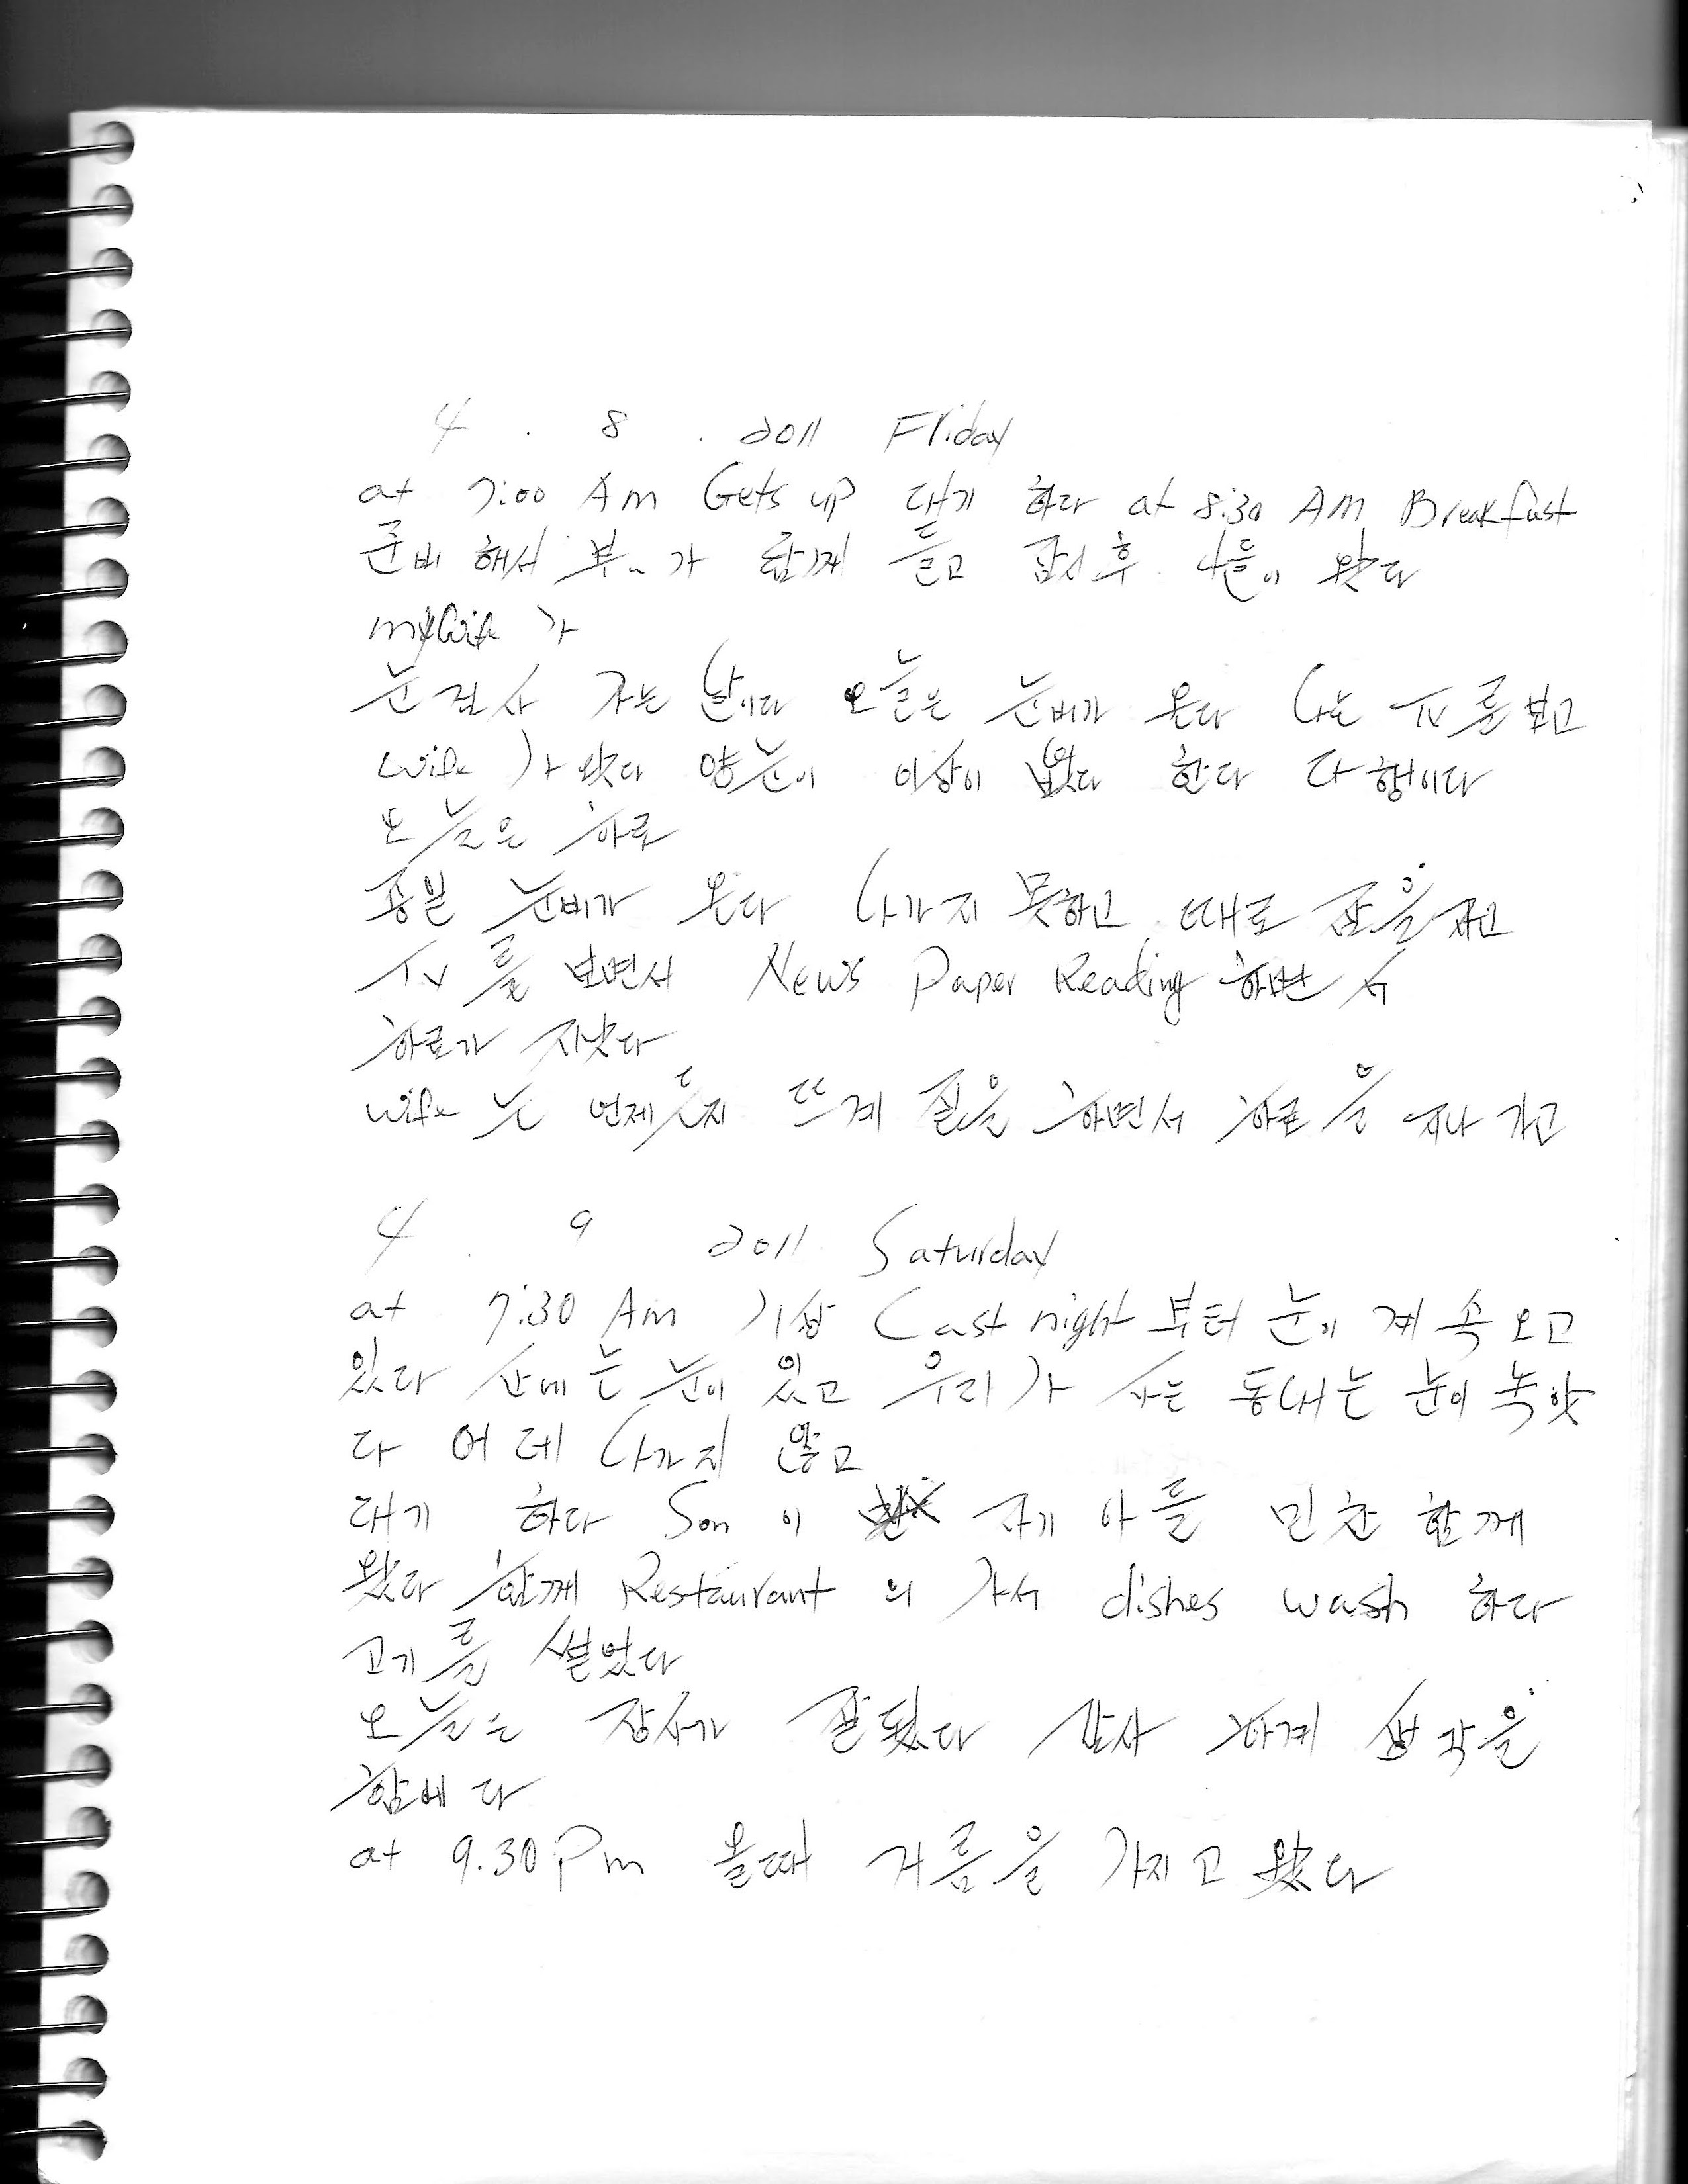 4 . 8 . 2011 Friday
at 7:00 Am Gets up 대기 하다 at 8:30 AM Breakfast
준비 해서 부〃가 함께 들고 잠시후 나들이 왔다
my Wife 가
눈검사 가는 날이다 오늘은 눈비가 온다 나는 TV를 보고
Wife 가 왔다 양눈이 이상이 없다 한다 다행이다
오늘은 하루
종일 눈비가 온다 나가지 못하고 때로 잠을 자고
TV를 보면서 News Paper Reading 하면서
하루가 지났다
wife 는 언제든지 뜨게 질을 하면서 하루을 지나 가고
4 . 9 2011 Saturday
at 7:30 Am 기상 Last night 부터 눈이 계속 오고
있다 산에는 눈이 있고 우리가 사는 동내는 눈이 녹핫
다 어데 나가지 않고
대기 하다 Son 이 자기 아들 민찬 함께
왔다 함께 Restaurant 의 가서 dishes wash 하다
고기를 썰었다
오늘는 장사가 잘됬다 감사 하게 생각을
함베다
at 9.30 Pm 올때 거름을 가지고 왔다